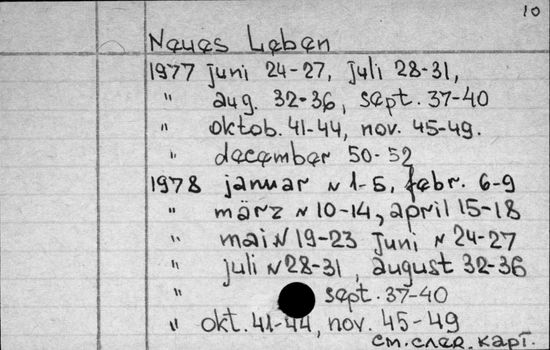 10
Neues Leben
1977 juni 24-27, juli 28-31,
" aug. 32-36, sept. 37-40
" oktob. 41-44, nov. 45-49.
" december 50-52
1978 januar N 1-5, febr. 6-9
" märz N 10-14, april 15-18
" mai N 19-23 juni N 24-27
" juli N 28-31, august 32-36
" sept. 37-40
" okt. 41-44, nov. 45-49
см. след. карт.